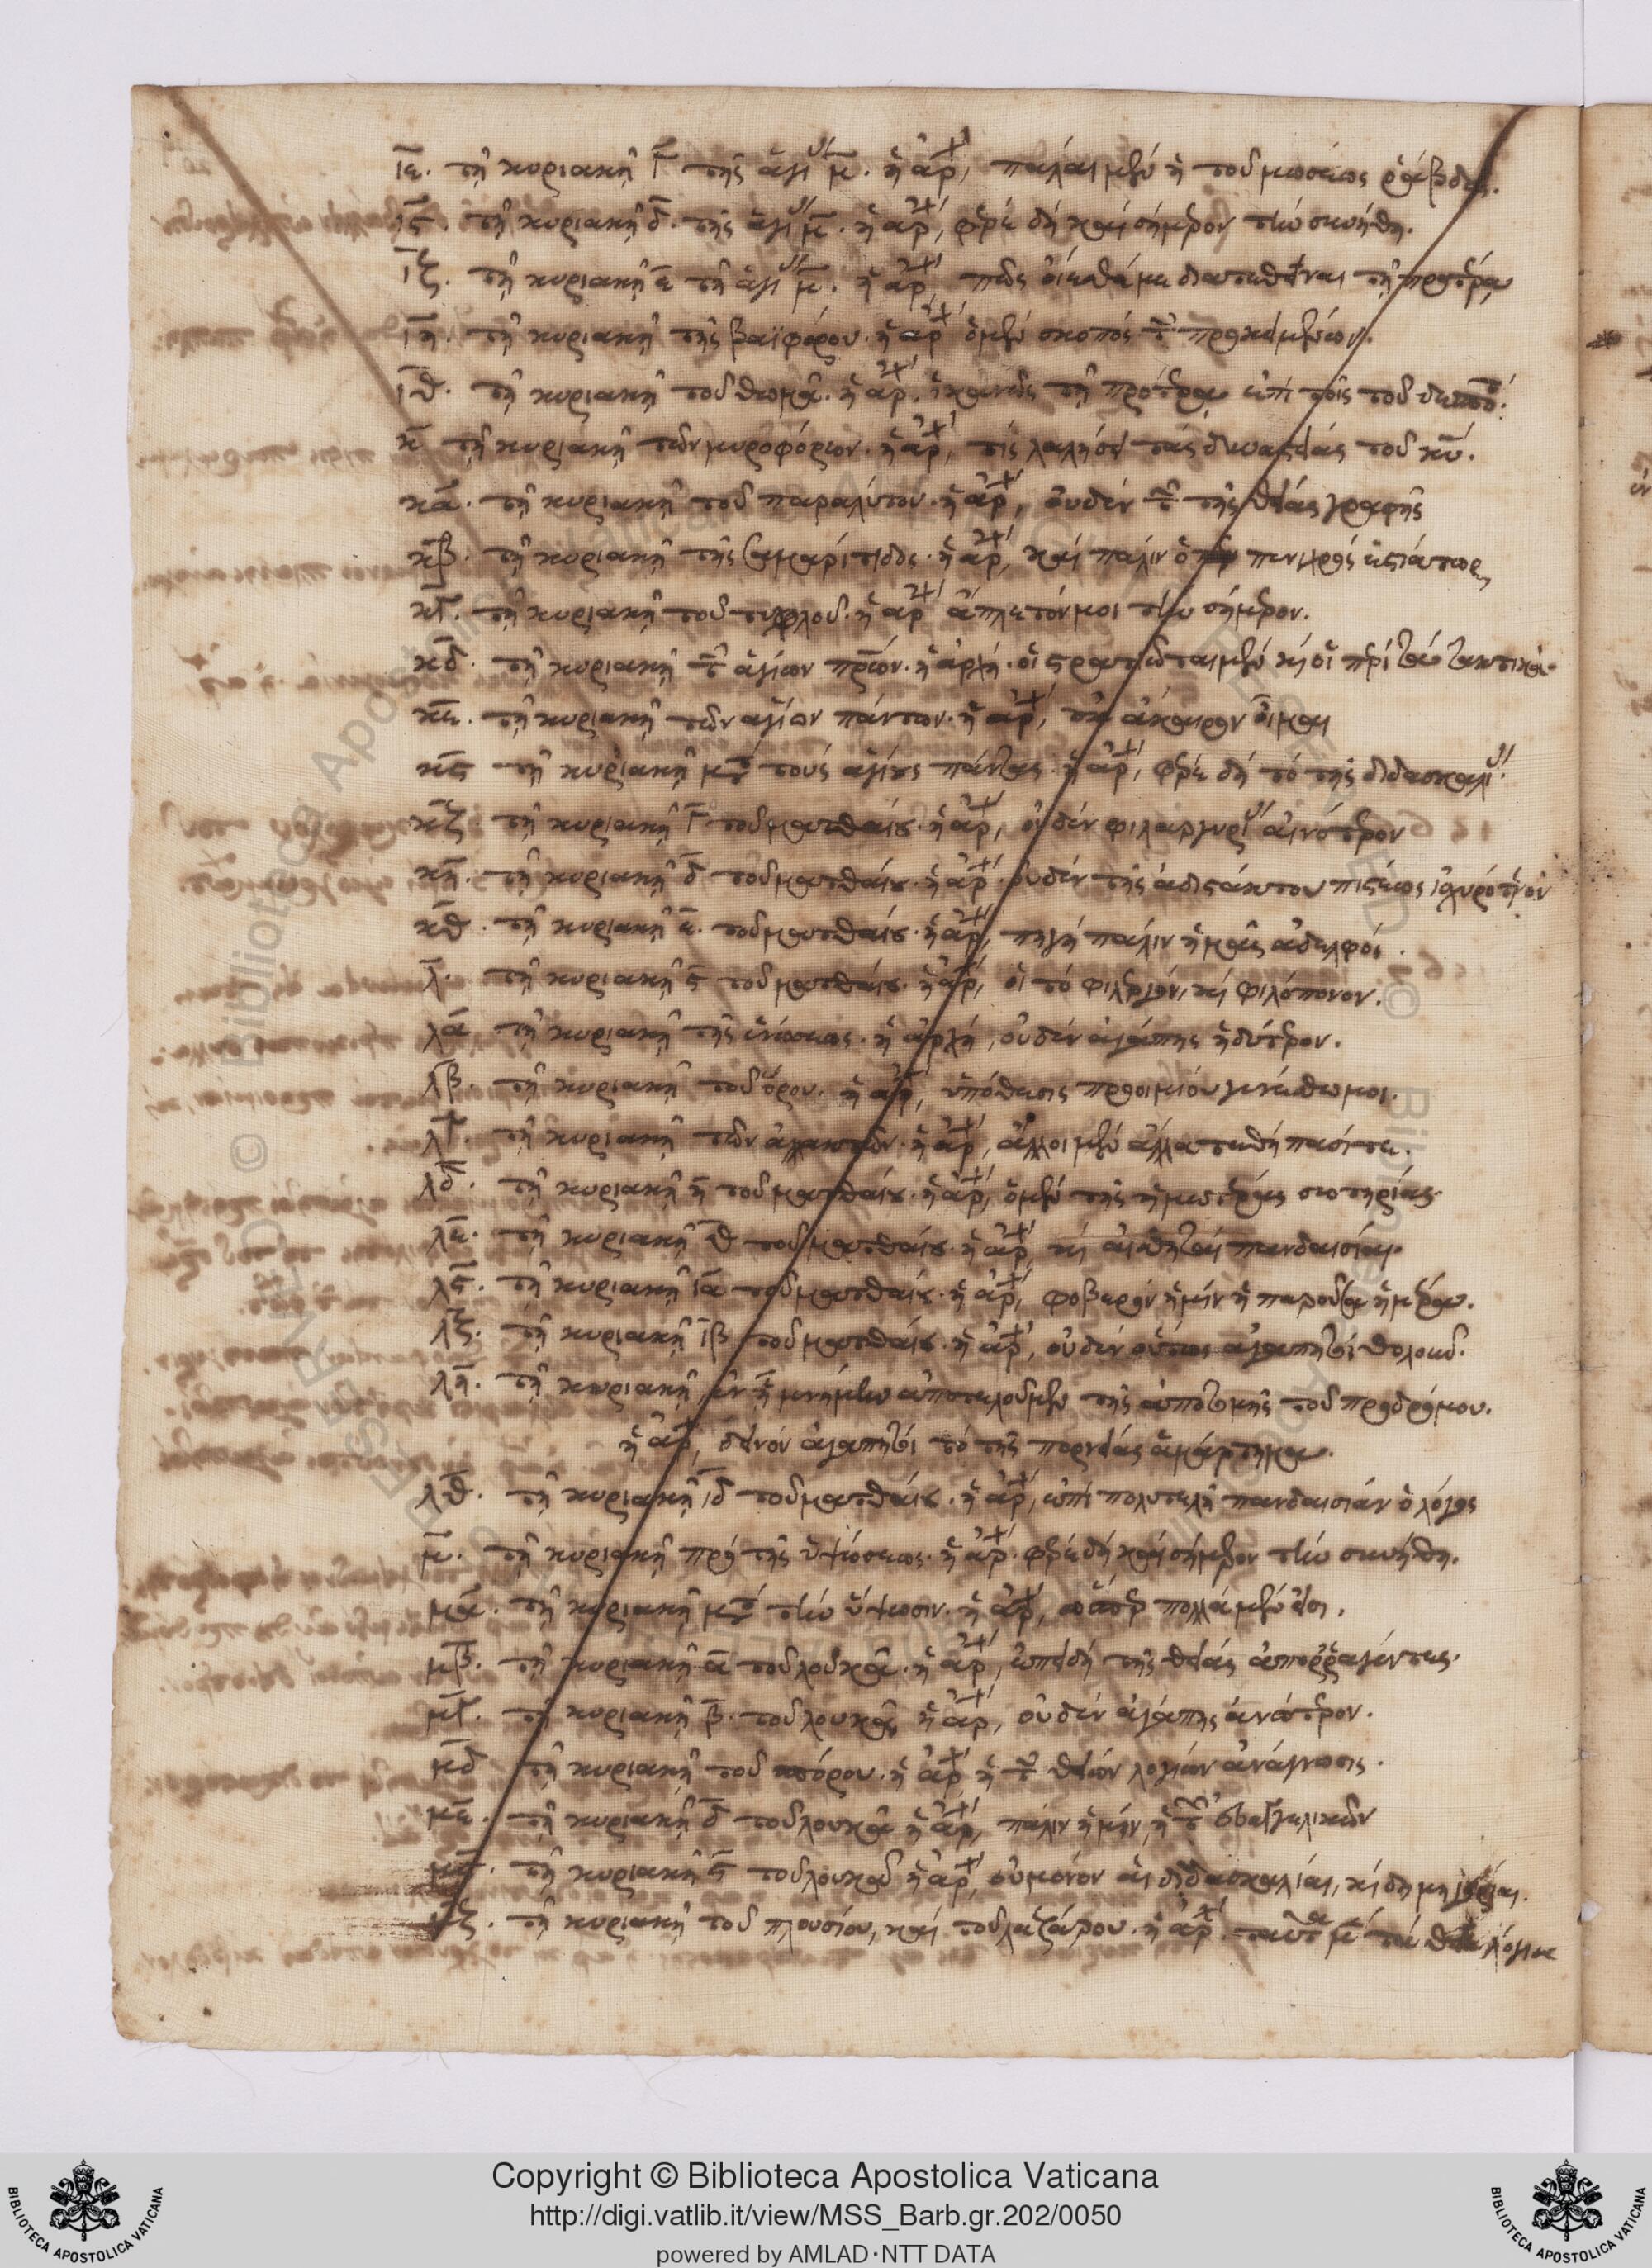 ιε. τῇ κυριακῇ γ τῆς ἁγι μ. ἡ ἀρχ, πάλαι μὲν ἡ τοῦ μωσέως ῥάβδος.
ις. τῇ κυριακῇ δ. τῆς ἁγι μ. ἡ ἀρχ, φέρε δὴ καὶ σήμερον τὴν συνήθη.
ιζ. τῇ κυριακῇ ε τῇ ἁγι μ. ἡ ἀρχ πῶς οἴεσθέ με διατεθεῖναι τῇ προτέρα
ιη. τῇ κυριακῇ τῆς βαϊφόρου. ἡ ἀρχ ὁ μὲν σκοπός τ προκειμένων.
ιθ. τῇ κυριακῇ τοῦ θωμᾶ. ἡ ἀρχ. ἱκανῶς τῇ προτέρα ἐπὶ τοῖς τοῦ
κ τῇ κυριακῇ τῶν μυροφόρων. ἡ ἀρχ, τίς λαλήσει τὰς δυναστείας τοῦ κυ.
κα. τῇ κυριακῇ τοῦ παραλύτου. ἡ ἀρχ, οὐδὲν τ τῆς θείας γραφῆς
κβ. τῇ κυριακῇ τῆς σαμαρίτιδος. ἡ ἀρχ, καὶ πάλιν ὁ πενιχρός ἑστιάτωρ
κγ. τῇ κυριακῇ τοῦ τυφλοῦ. ἡ ἀρχ ἄπλετόν μοι τὴν σήμερον.
κδ. τῇ κυριακῇ τ ἁγίων πρων. ἡ ἀρχή. οἱ στρατιῶται μὲν κ οἱ περὶ τὰ τακτικά.
κε. τῇ κυριακῇ τῶν ἁγίων πάντων. ἡ ἀρχ, οὐκ ἄκαιρον οἶμαι
κς τῇ κυριακῇ μετὰ τοὺς ἁγίους πάντας. ἡ ἀρχ, φέρε δὴ τὸ τῆς διδασκαλι.
κζ. τῇ κυριακῇ γ τοῦ ματθαίου. ἡ ἀρχ, οὐδὲν φιλαργυρι
κη. τῇ κυριακῇ δ τοῦ ματθαίου. ἡ ἀρχ. οὐδὲν τῆς ἀδιστάκτου πίστεως ἰσχυρότερον
κθ. τῇ κυριακῇ ε. τοῦ ματθαίου. ἡ ἀρχ, πηγὴ πάλιν ἡμᾶς ἀδελφοί.
λ. τῇ κυριακῇ ς τοῦ ματθαίου. ἡ ἀρχ, εἰ τὸ φιλεργόν, κ φιλόπονον.
λα τῇ κυριακῇ τῆς ἑνώσεως. ἡ ἀρχή, οὐδὲν ἀγάπης ἡδύτερον.
λβ. τῇ κυριακῇ τοῦ ὅρου. ἡ ἀρχ, ὑπόθεσις προοιμίου γενέσθω μοι.
λγ. τῇ κυριακῇ τῶν ἀλλακτῶν. ἡ ἀρχ, ἄλλοι μὲν ἄλλα
λδ. τῇ κυριακῇ η τοῦ ματθαίου. ἡ ἀρχ, ὁ μὲν τῆς ἡμετέρας σωτηρίας.
λε. τῇ κυριακῇ θ τοῦ ματθαίου. ἡ ἀρχ, κ αἰσθητὴ πανδαισία.
λς. τῇ κυριακῇ ια τοῦ ματθαίου. ἡ ἀρχ, φοβερὸν ἡμῖν ἡ παροῦσα ἡμέρα.
λζ. τῇ κυριακῇ ιβ τοῦ ματθαίου. ἡ ἀρχ, οὐδὲν οὕτως ἀγαπητοὶ
λη. τῇ κυριακῇ, ἐν ᾗ μνήμην ἀποτελοῦμεν τῆς ἀποτομῆς τοῦ προδρόμου.
ἡ ἀρχ, δεινόν ἀγαπητοὶ τὸ τῆς πορνείας ἁμάρτημα.
λθ. τῇ κυριακῇ ιδ τοῦ ματθαίου. ἡ ἀρχ, ἐπὶ πολυτελῆ πανδαισίαν ὁ λόγος
μ. τῇ κυριακῇ πρὸ τῆς ὑψώσεως. ἡ ἀρχ. φέρε δὴ καὶ σήμερον τὴν συνήθη.
μα. τῇ κυριακῇ μετὰ τὴν ὕψωσιν. ἡ ἀρχ, ὥσπερ πολλὰ μὲν εἰσι.
μβ. τῇ κυριακῇ α τοῦ λουκᾶ. ἡ ἀρχ, ἐπειδὴ τῆς θείας ἀπορραγέντες.
μγ. τῇ κυριακῇ β. τοῦ λουκᾶ, ἡ ἀρχ, οὐδὲν ἀγάπης ἀνώτερον.
μδ τῇ κυριακῇ τοῦ σπόρου. ἡ ἀρχ ἡ τ θείων λογίων ἀνάγνωσις.
με. τῇ κυριακῇ δ τοῦ λουκᾶ ἡ ἀρχ, πάλιν ἡμῖν, ἡ τ εὐαγγελικῶν
μς. τῇ κυριακῇ ς τοῦ λουκᾶ ἡ ἀρχ, οὐ μόνον αἱ διδασκαλίαι, κ δημηγορίαι.
μζ. τῇ κυριακῇ τοῦ πλουσίου, καὶ τοῦ λαζάρου. ἡ ἀρχ. ταῦτα μ τὰ θεῖα λόγια
Copyright © Biblioteca Apostolica Vaticana
http://digi.vatlib.it/view/MSS_Barb.gr.202/0050
powered by AMLAD·NTT DATA
BIBLIOTECA APOSTOLICA VATICANA
BIBLIOTECA APOSTOLICA VATICANA